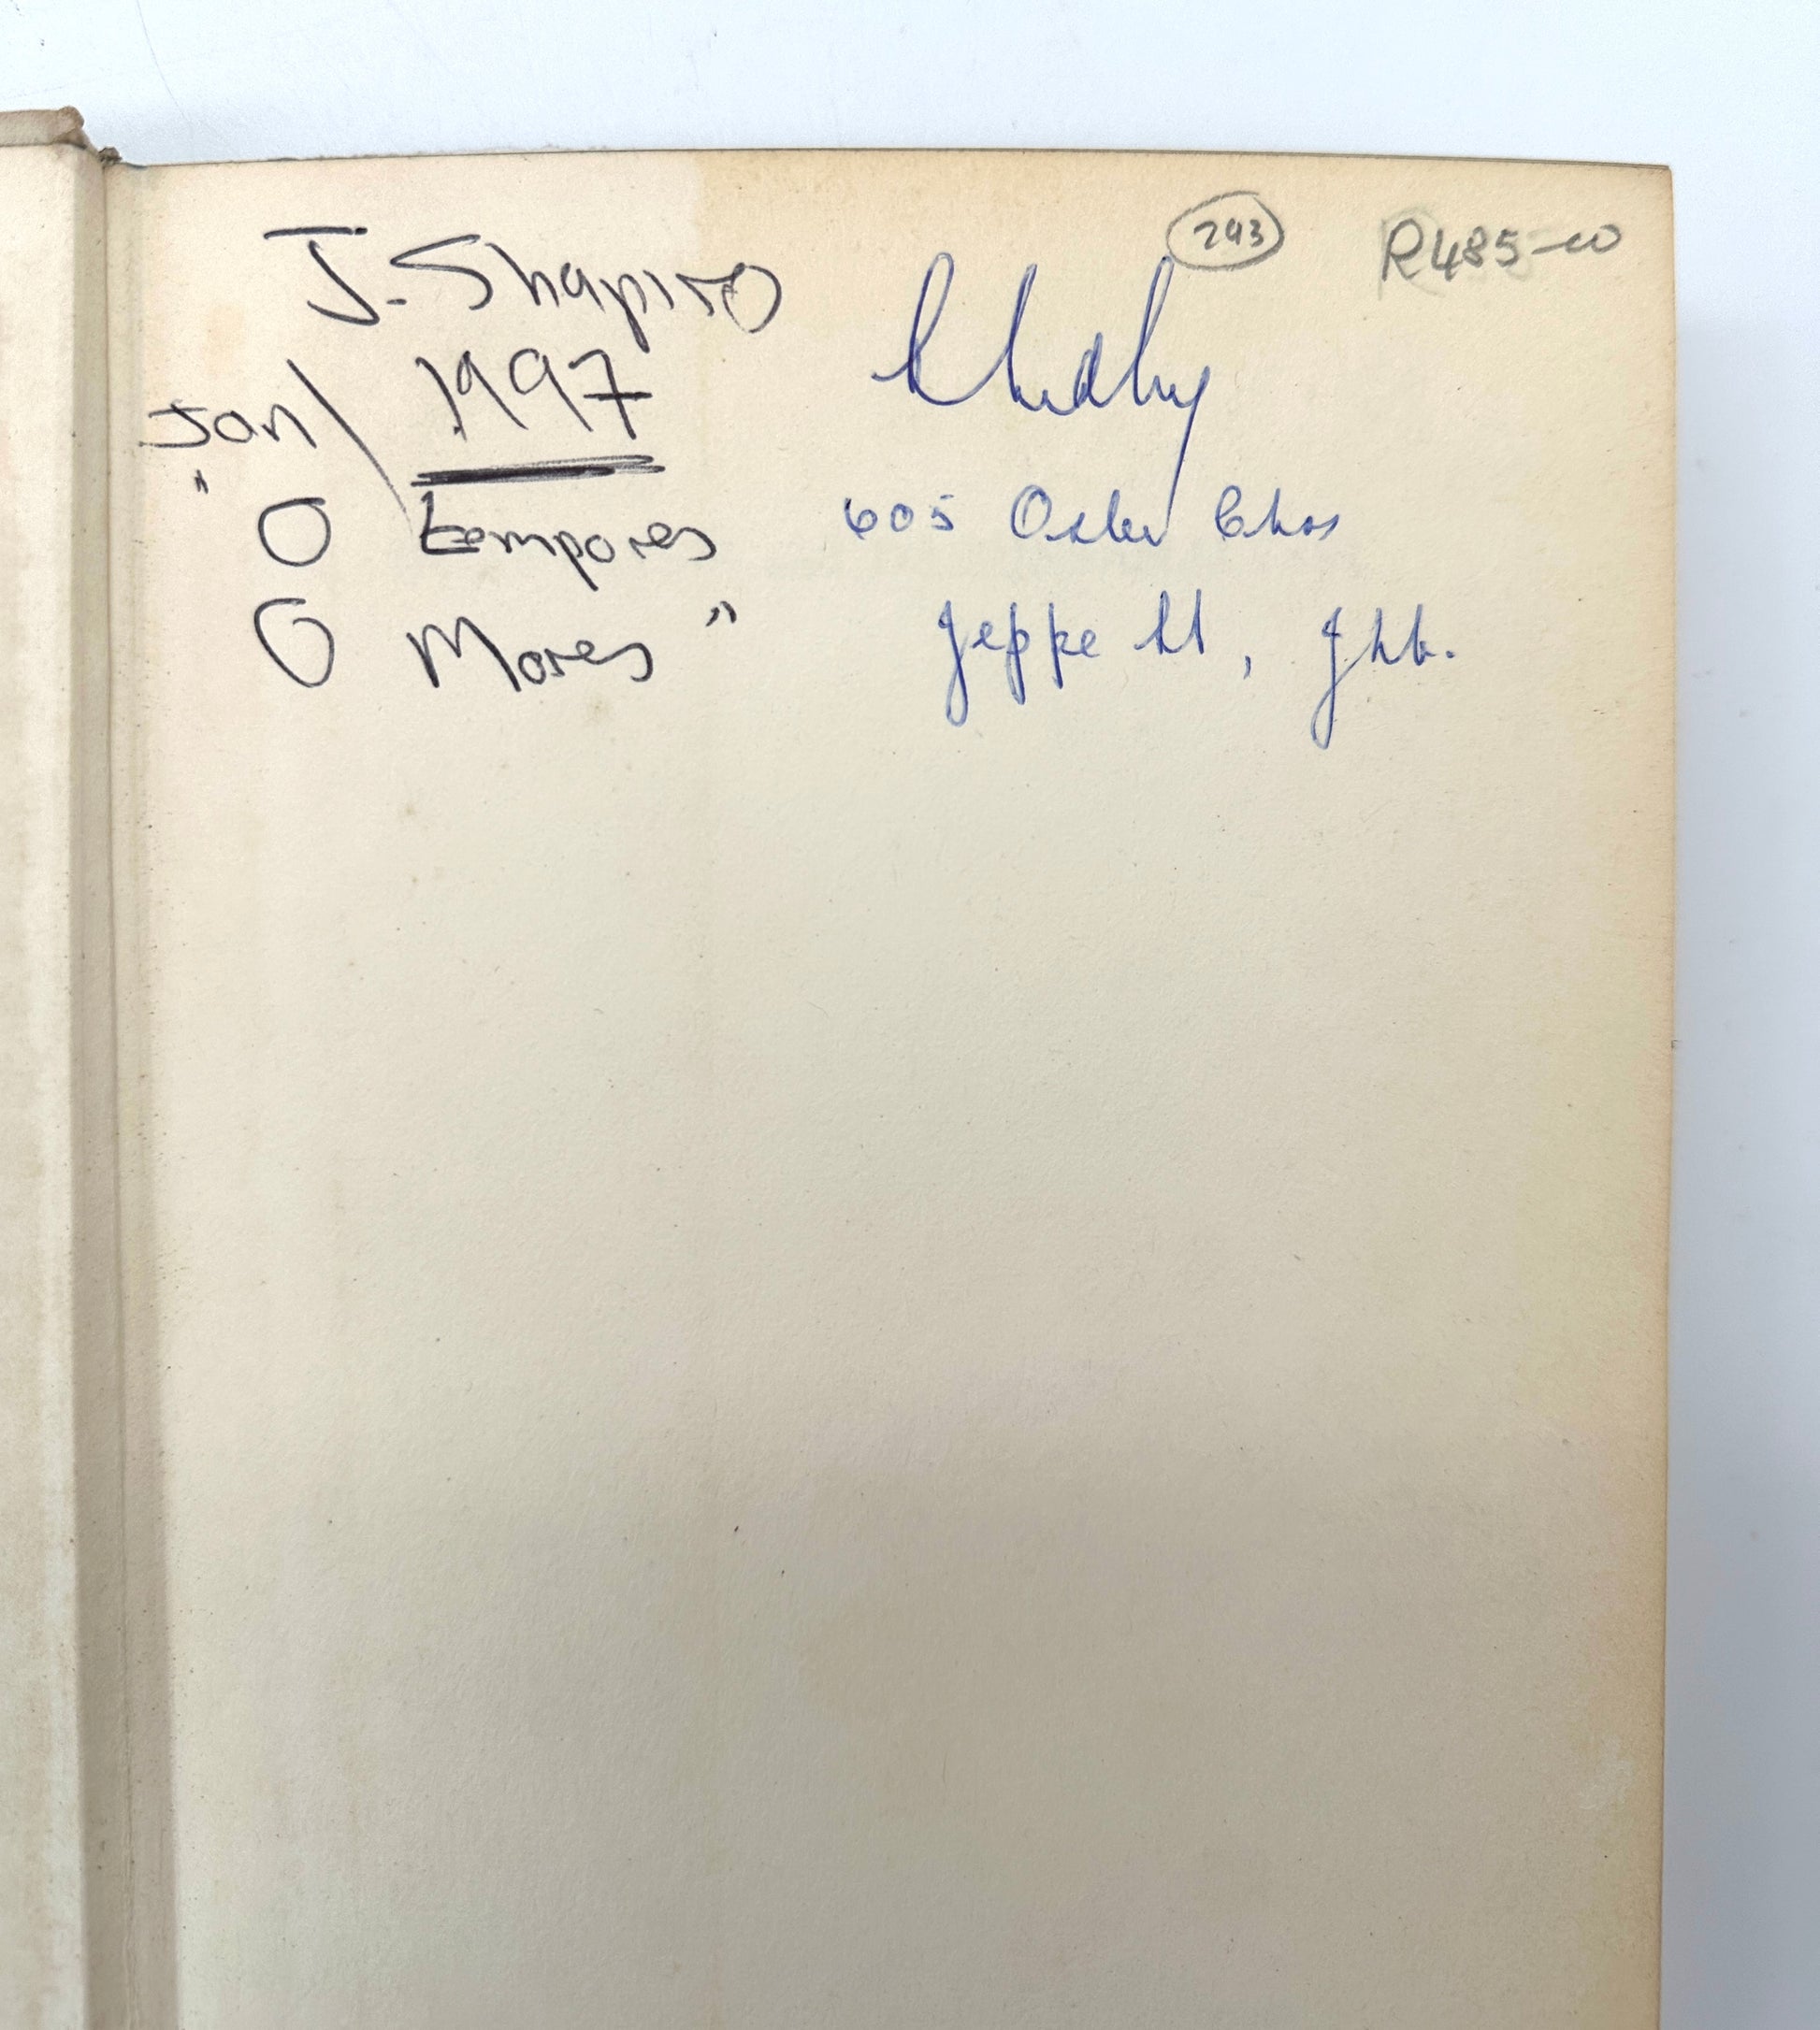 J. Shapiro
Jan / 1997
" O tempores
O Mores "
293
R485-00
605 Osler Chos
Jeppe St, Jhb.